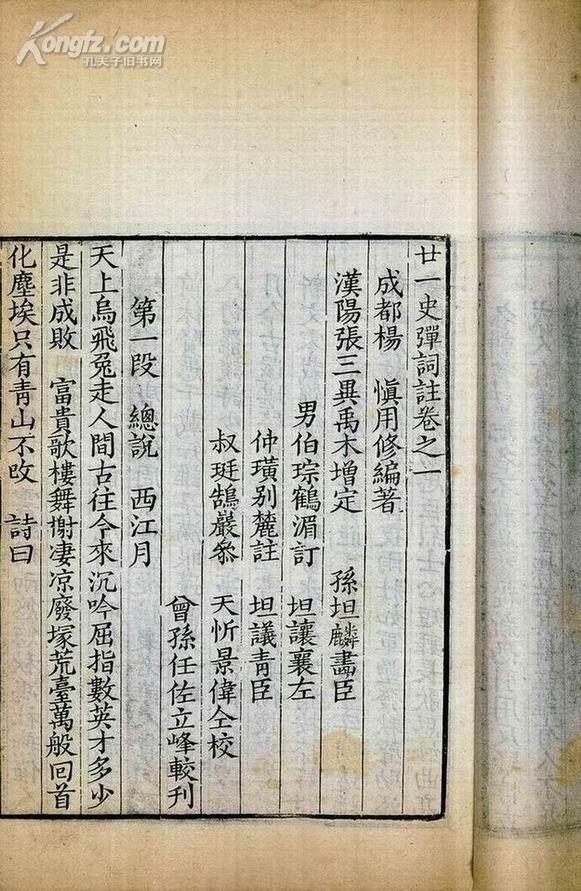 Kongfz.com
孔夫子旧书网
廿一史彈詞註卷之一
成都楊 愼用修編著
漢陽張三異禹木增定 孫坦麟畵臣
男伯琮鶴湄訂 坦讓襄左
仲璜别麓註 坦議青臣
叔珽鵠巖叅 天忻景偉仝校
曾孫任佐立峰較刊
第一段 總說 西江月
天上烏飛兔走人間古往今來沉吟屈指數英才多少
是非成敗 富貴歌樓舞榭凄凉廢塚荒臺萬般回首
化塵埃只有青山不改 詩曰